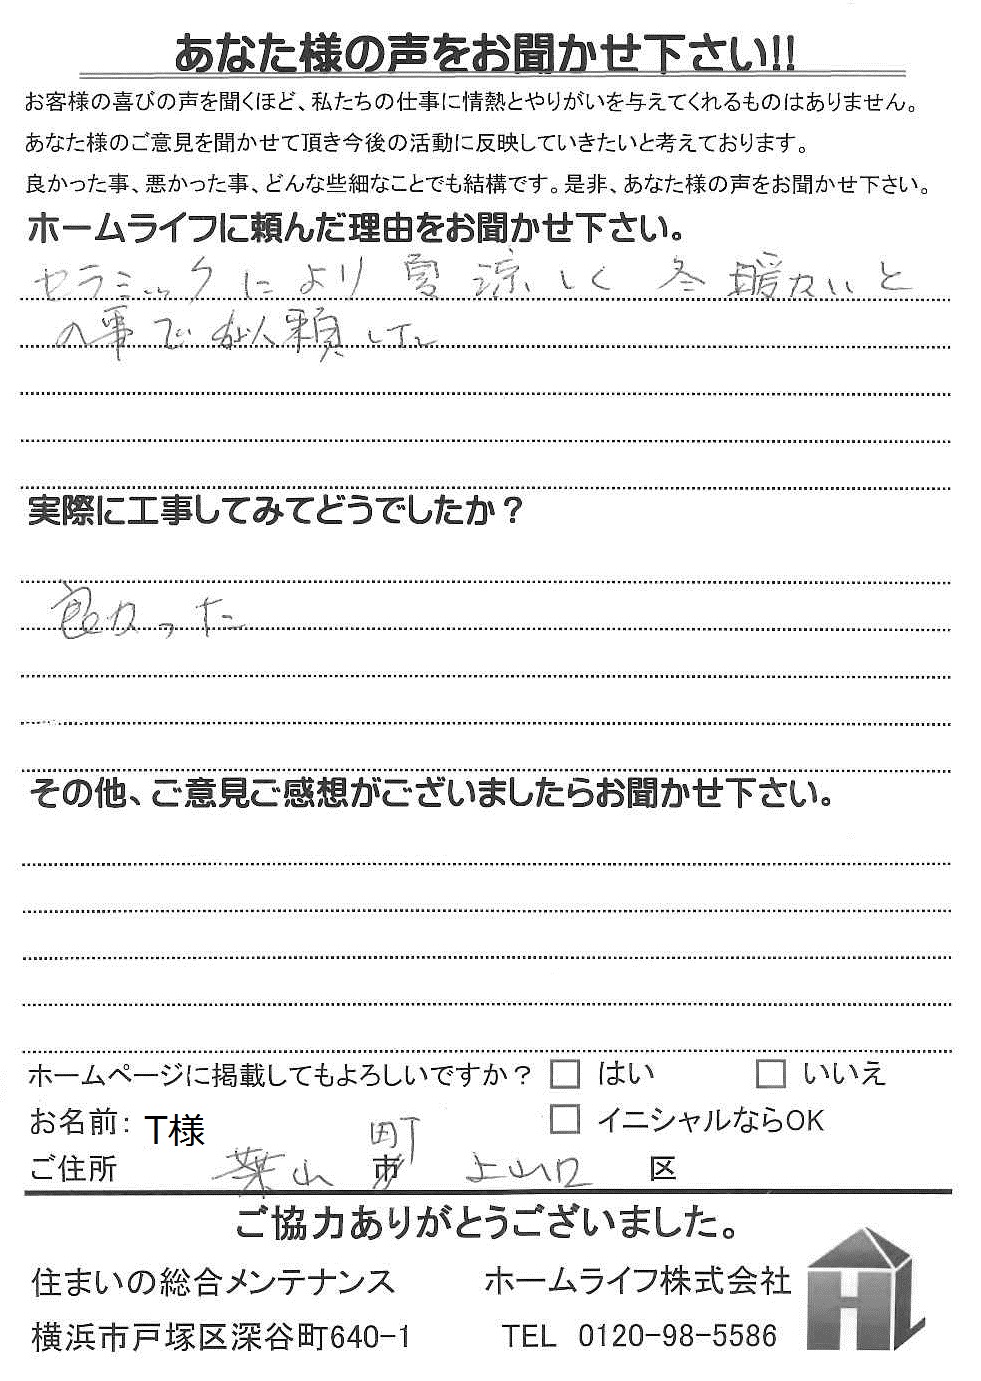 あなた様の声をお聞かせ下さい!!
お客様の喜びの声を聞くほど、私たちの仕事に情熱とやりがいを与えてくれるものはありません。
あなた様のご意見を聞かせて頂き今後の活動に反映していきたいと考えております。
良かった事、悪かった事、どんな些細なことでも結構です。是非、あなた様の声をお聞かせ下さい。
ホームライフに頼んだ理由をお聞かせ下さい。
セラミックにより 夏 涼しく 冬 暖かいと
の事で依頼した
実際に工事してみてどうでしたか？
良かった
その他、ご意見ご感想がございましたらお聞かせ下さい。
ホームページに掲載してもよろしいですか？ □ はい □ いいえ
お名前: T様 □ イニシャルならOK
ご住所 葉山 市 町 上山口 区
ご協力ありがとうございました。
住まいの総合メンテナンス ホームライフ株式会社
横浜市戸塚区深谷町640-1 TEL 0120-98-5586
HL